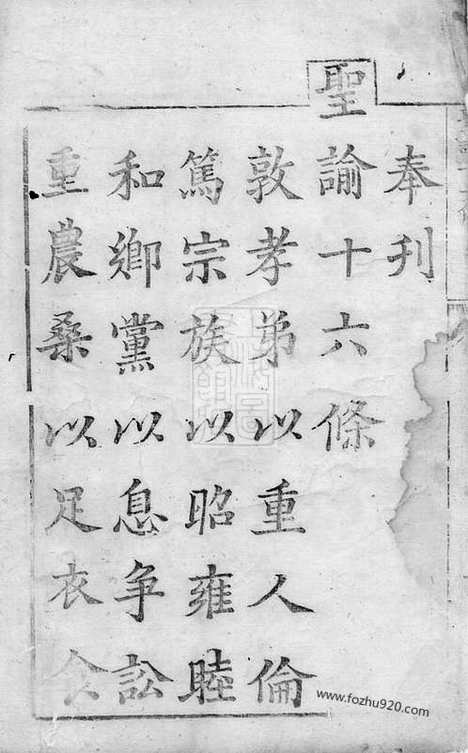 奉刊
聖諭十六條
敦孝弟以重人倫
篤宗族以昭雍睦
和鄉黨以息爭訟
重農桑以足衣食
www.fozhu920.com